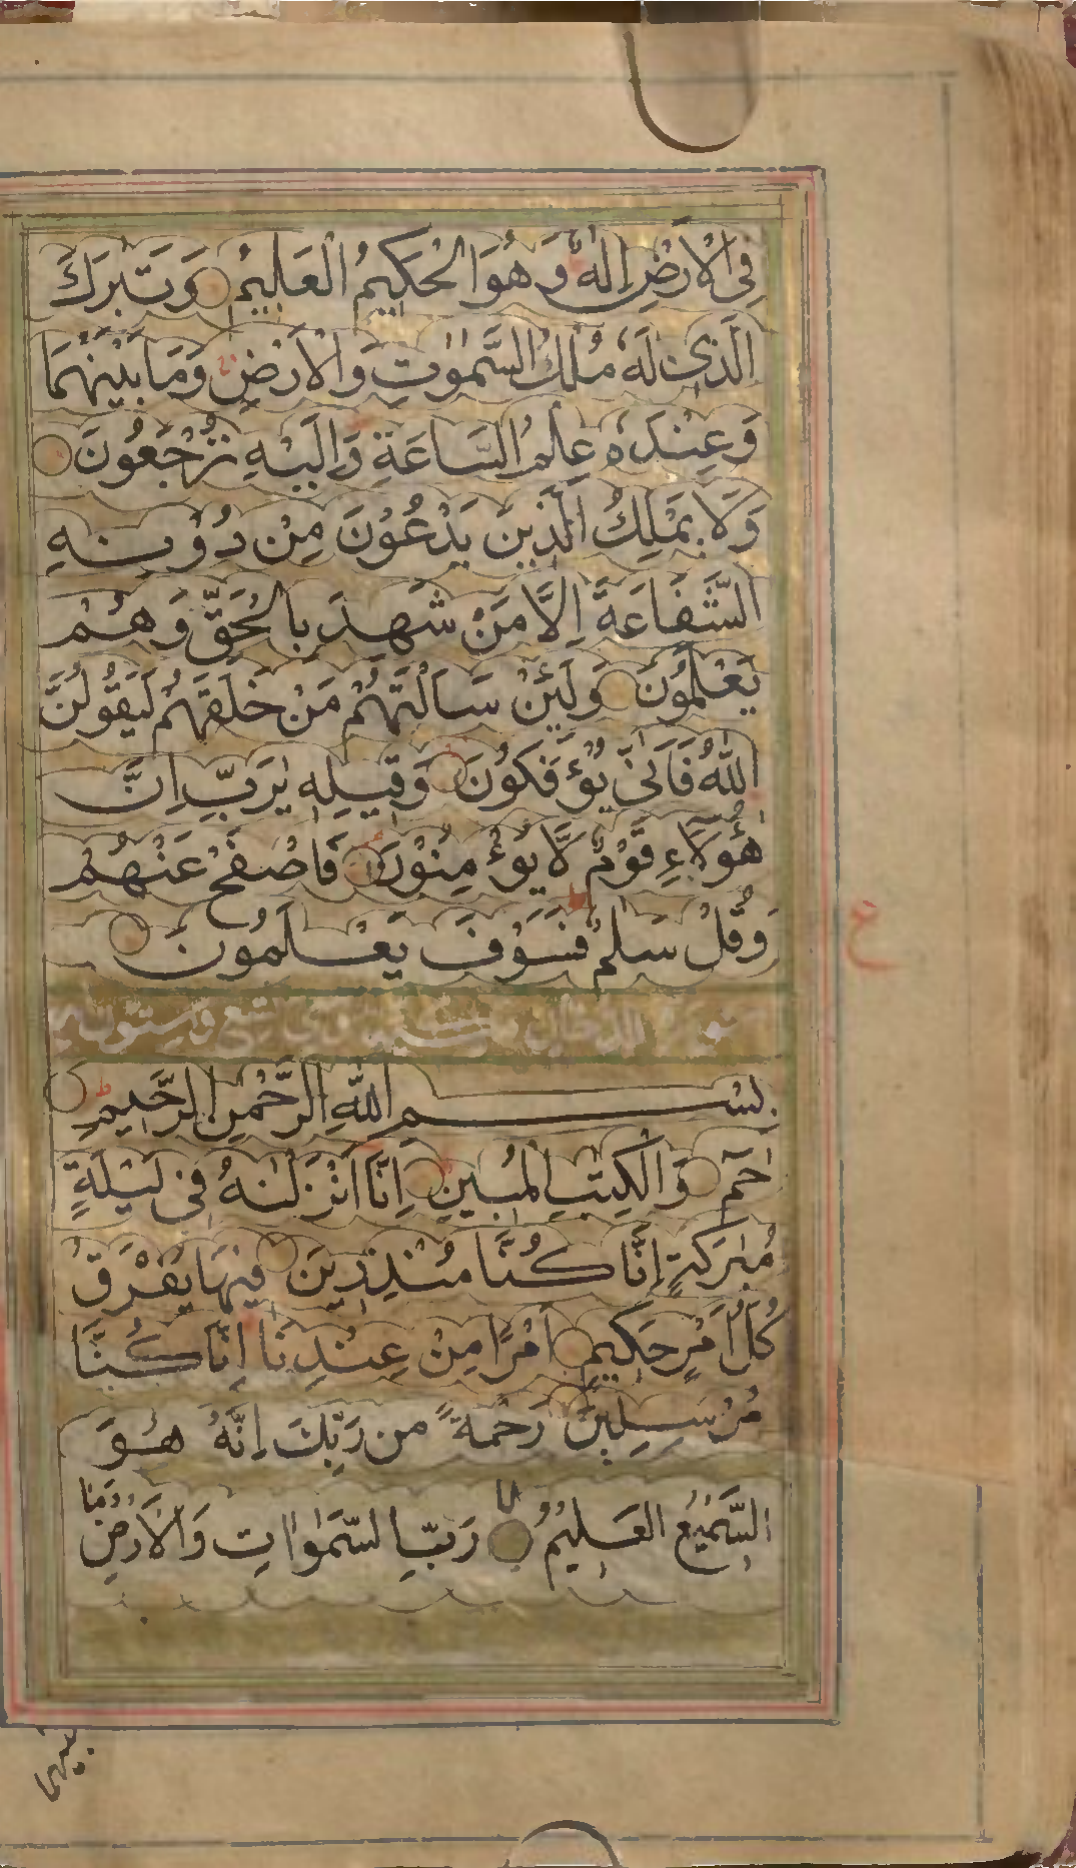 فِى الْاَرْضِ اِلٰهٌ وَهُوَ الْحَكِيْمُ الْعَلِيْمُ وَتَبٰرَكَ
الَّذِىْ لَهٗ مُلْكُ السَّمٰوٰتِ وَالْاَرْضِ وَمَا بَيْنَهُمَا
وَعِنْدَهٗ عِلْمُ السَّاعَةِ وَاِلَيْهِ تُرْجَعُوْنَ
وَلَا يَمْلِكُ الَّذِيْنَ يَدْعُوْنَ مِنْ دُوْنِهِ
الشَّفَاعَةَ اِلَّا مَنْ شَهِدَ بِالْحَقِّ وَهُمْ
يَعْلَمُوْنَ وَلَئِنْ سَاَلْتَهُمْ مَنْ خَلَقَهُمْ لَيَقُوْلُنَّ
اللّٰهُ فَاَنّٰى يُؤْفَكُوْنَ وَقِيْلِهٖ يٰرَبِّ اِنَّ
هٰٓؤُلَآءِ قَوْمٌ لَّا يُؤْمِنُوْنَ فَاصْفَحْ عَنْهُمْ
وَقُلْ سَلٰمٌ فَسَوْفَ يَعْلَمُوْنَ
ع
بِسْمِ اللّٰهِ الرَّحْمٰنِ الرَّحِيْمِ
حٰمٓ وَالْكِتٰبِ الْمُبِيْنِ اِنَّا اَنْزَلْنٰهُ فِىْ لَيْلَةٍ
مُبٰرَكَةٍ اِنَّا كُنَّا مُنْذِرِيْنَ فِيْهَا يُفْرَقُ
كُلُّ اَمْرٍ حَكِيْمٍ اَمْرًا مِنْ عِنْدِنَا اِنَّا كُنَّا
مُرْسِلِيْنَ رَحْمَةً مِنْ رَبِّكَ اِنَّهٗ هُوَ
السَّمِيْعُ الْعَلِيْمُ رَبِّ السَّمٰوَاتِ وَالْاَرْضِ وَمَا
بينهما